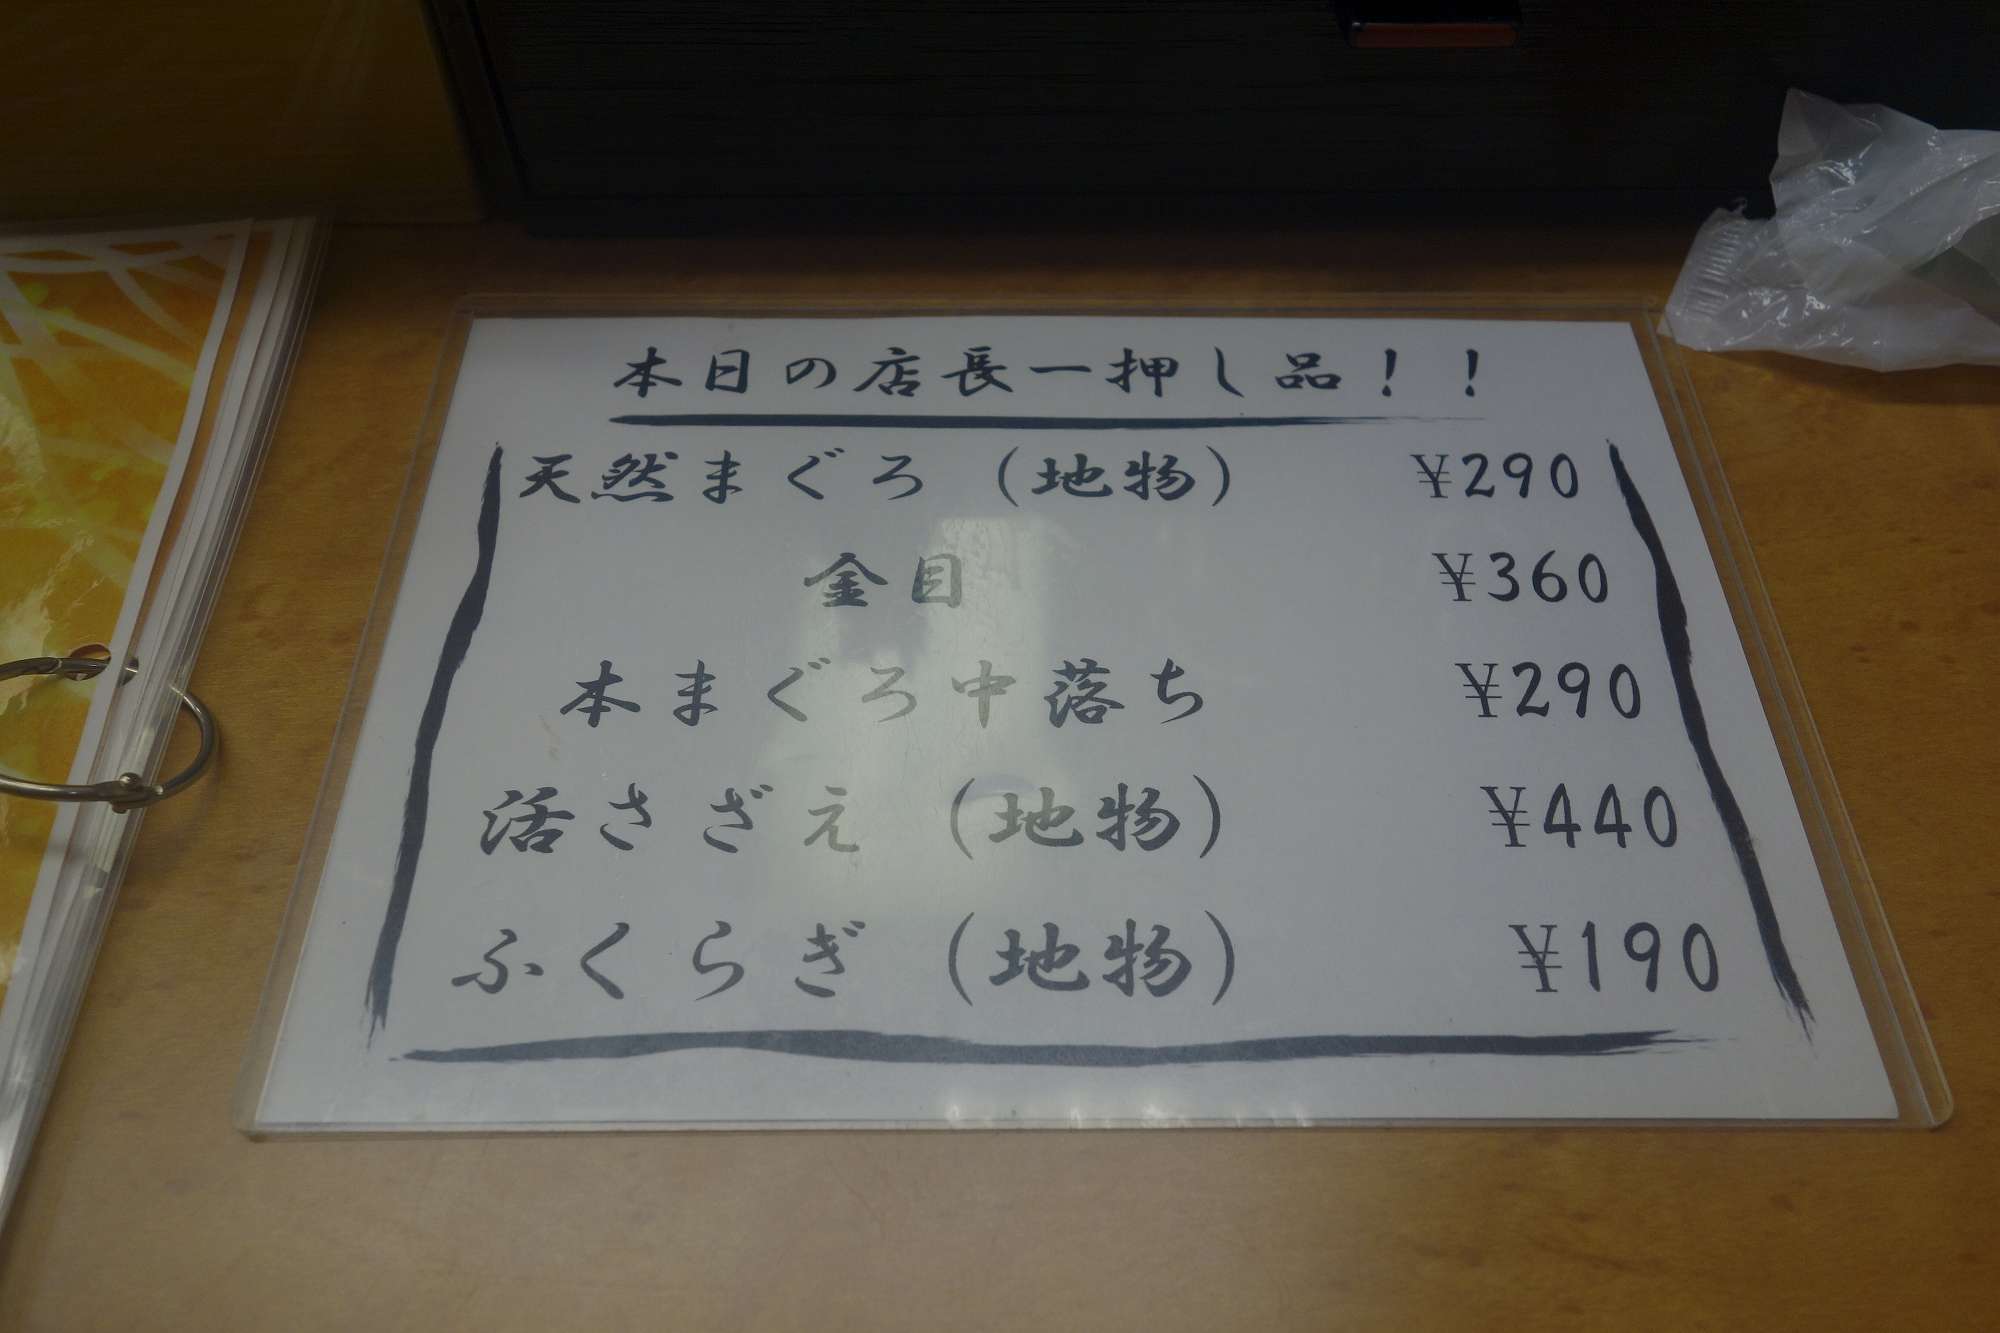 本日の店長一押し品！！
天然まぐろ（地物） ¥290
金目 ¥360
本まぐろ中落ち ¥290
活さざえ（地物） ¥440
ふくらぎ（地物） ¥190